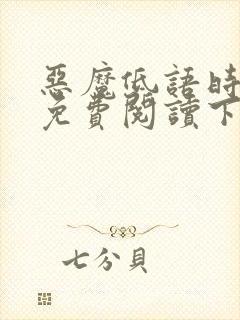 惡魔低語時
免費閱讀下
七分貝